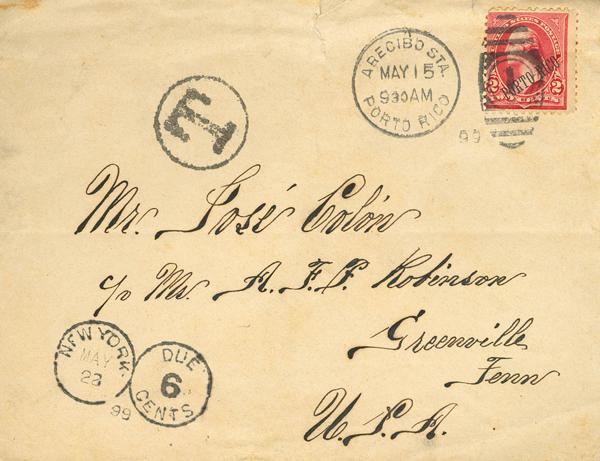 ARECIBO STA.
MAY 15
930AM
PORTO RICO
99
PORTO RICO
2 2
T
Mr. José Colón
c/o Mr. A. F. P. Robinson
Greenville
Tenn
U. S. A.
NEW YORK.
MAY
23
99
DUE
6
CENTS